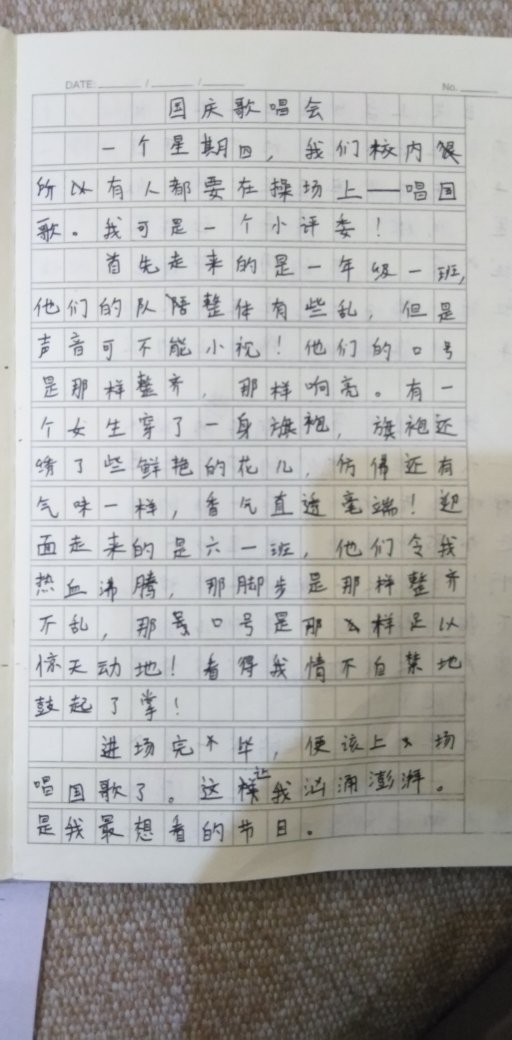 DATE: / / No.
国庆歌唱会
一个星期四，我们校内很
所以有人都要在操场上——唱国
歌。我可是一个小评委！
首先走来的是一年级一班，
他们的队陪整体有些乱，但是
声音可不能小视！他们的口号
是那样整齐，那样响亮。有一
个女生穿了一身旗袍，旗袍还
绣了些鲜艳的花儿，仿佛还有
气味一样，香气直透毫端！迎
面走来的是六一班，他们令我
热血沸腾，那脚步是那样整齐
不乱，那口号是那样足以
惊天动地！看得我情不自禁地
鼓起了掌！
进场完毕，便该上场
唱国歌了。这让我汹涌澎湃。
是我最想看的节目。